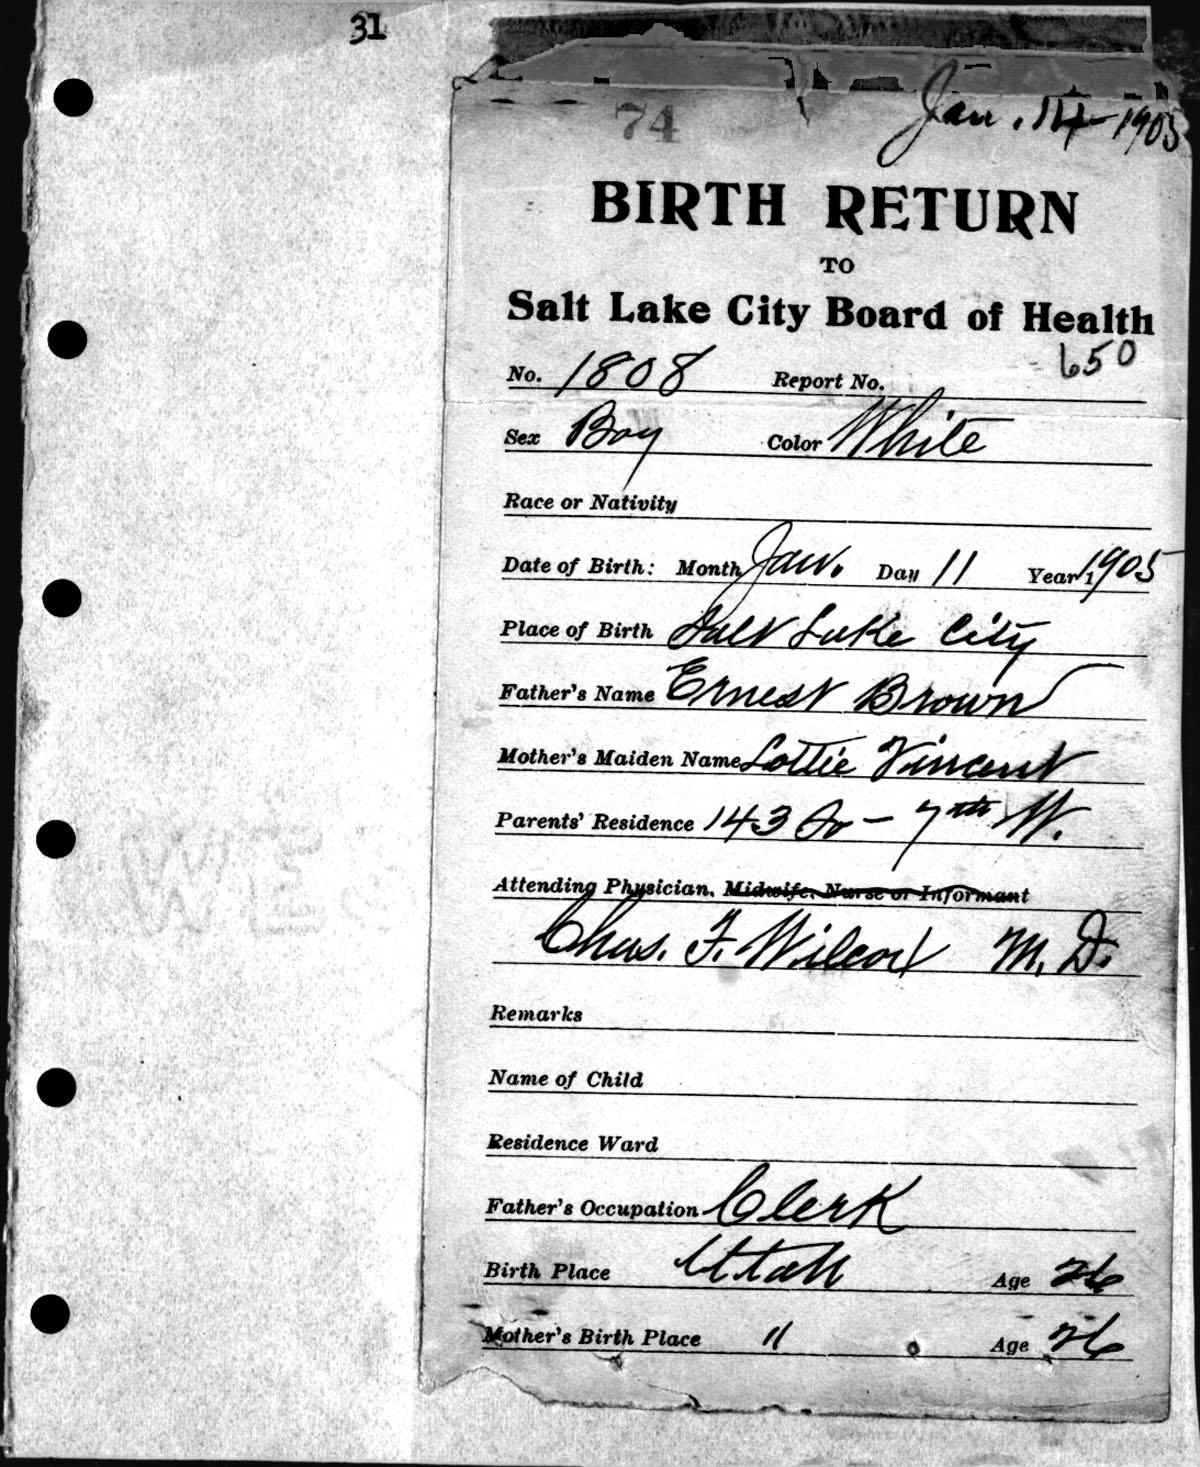 31
74
Jan. 14 1905
BIRTH RETURN
TO
Salt Lake City Board of Health
650
No. 1808 Report No.
Sex Boy Color White
Race or Nativity
Date of Birth: Month Jan. Day 11 Year 1905
Place of Birth Salt Lake City
Father's Name Ernest Brown
Mother's Maiden Name Lottie Vincent
Parents' Residence 143 So - 7th W.
Attending Physician, Midwife, Nurse or Informant
Chas. F. Wilcox M. D.
Remarks
Name of Child
Residence Ward
Father's Occupation Clerk
Birth Place Utah Age 26
Mother's Birth Place " Age 26